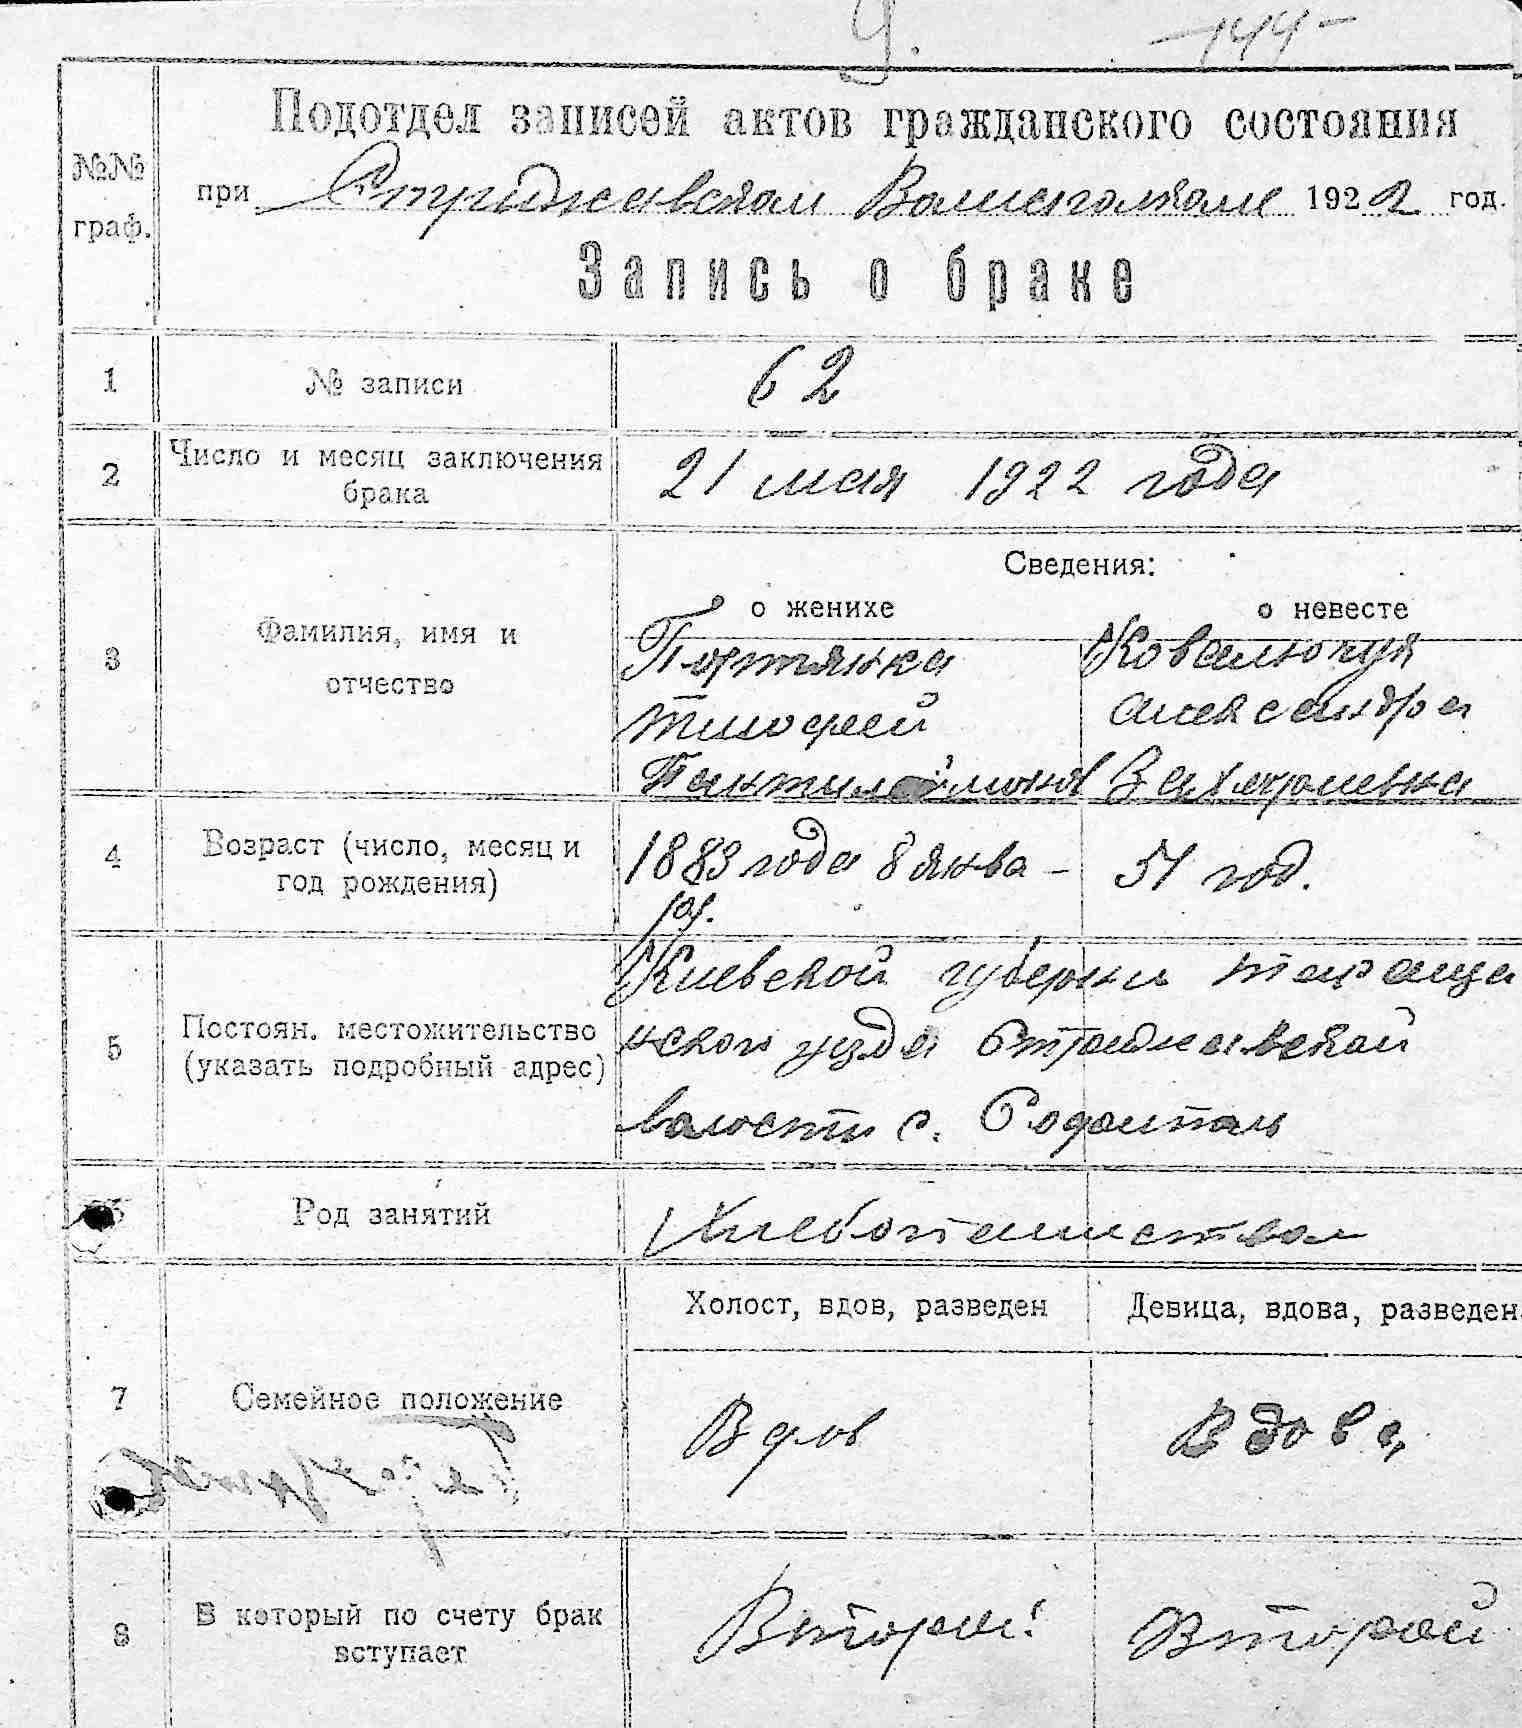 9.
-144-
№№ граф.
Подотдел записей актов гражданского состояния
при Стрижавском Волисполкоме 1922 год.
Запись о браке
1 № записи 62
2 Число и месяц заключения брака 21 мая 1922 года
Сведения:
о женихе о невесте
3 Фамилия, имя и отчество
Портянка Ковалючук
Тимофей Александра
Пантилеймонов Захарьевна
4 Возраст (число, месяц и год рождения)
1883 года 8 янва- 51 год.
ря.
5 Постоян. местожительство (указать подробный адрес)
Киевской губернии Тараща
нского уезда Стрижавской
волости с.
Род занятий Хлебопашеством
Холост, вдов, разведен Девица, вдова, разведен.
7 Семейное положение Вдов Вдова
8 В который по счету брак вступает Второй Второй